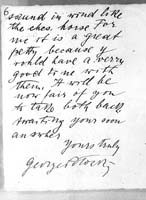 6
sound in wind like
the ches. horse for
me it is a great
petty because y
would have a verry
good to me with
them. It will be
now fair if you
to take both back
Awaiting your soon
answer
Yours truly
George